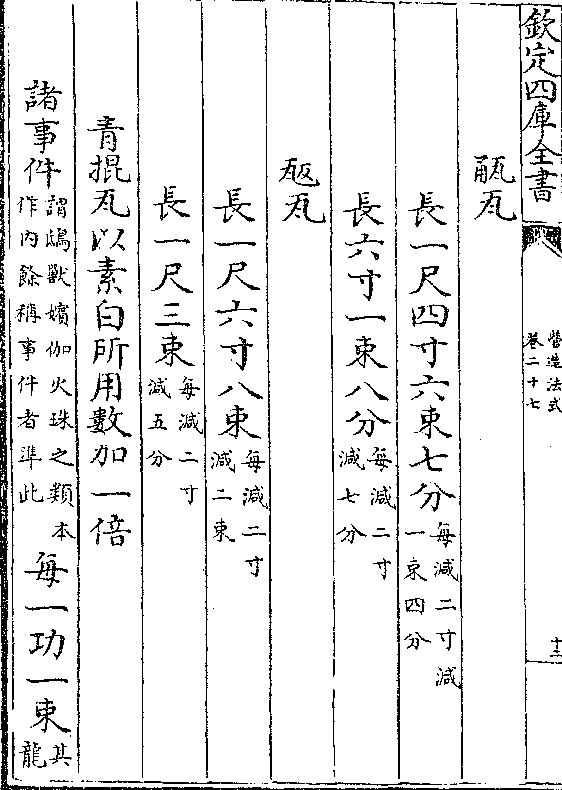 欽定四庫全書
營造法式
卷二十七
十三
㼧瓦
長一尺四寸六束七分每減二寸減
一束四分
長六寸一束八分每減二寸
減七分
瓪瓦
長一尺六寸八束每減二寸
減二束
長一尺三束每減二寸
減五分
青掍瓦以素白所用數加一倍
諸事件謂鴟獸嬪伽火珠之類本
作內餘稱事件者準此每一功一束其
龍